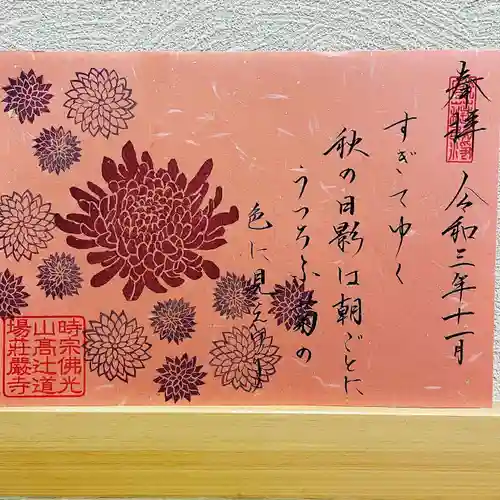 奉拝
令和三年十一月
すぎてゆく
秋の日影は朝ごとに
うつろふ菊の
色に見えけり
時宗佛光
山高辻道
場荘厳寺